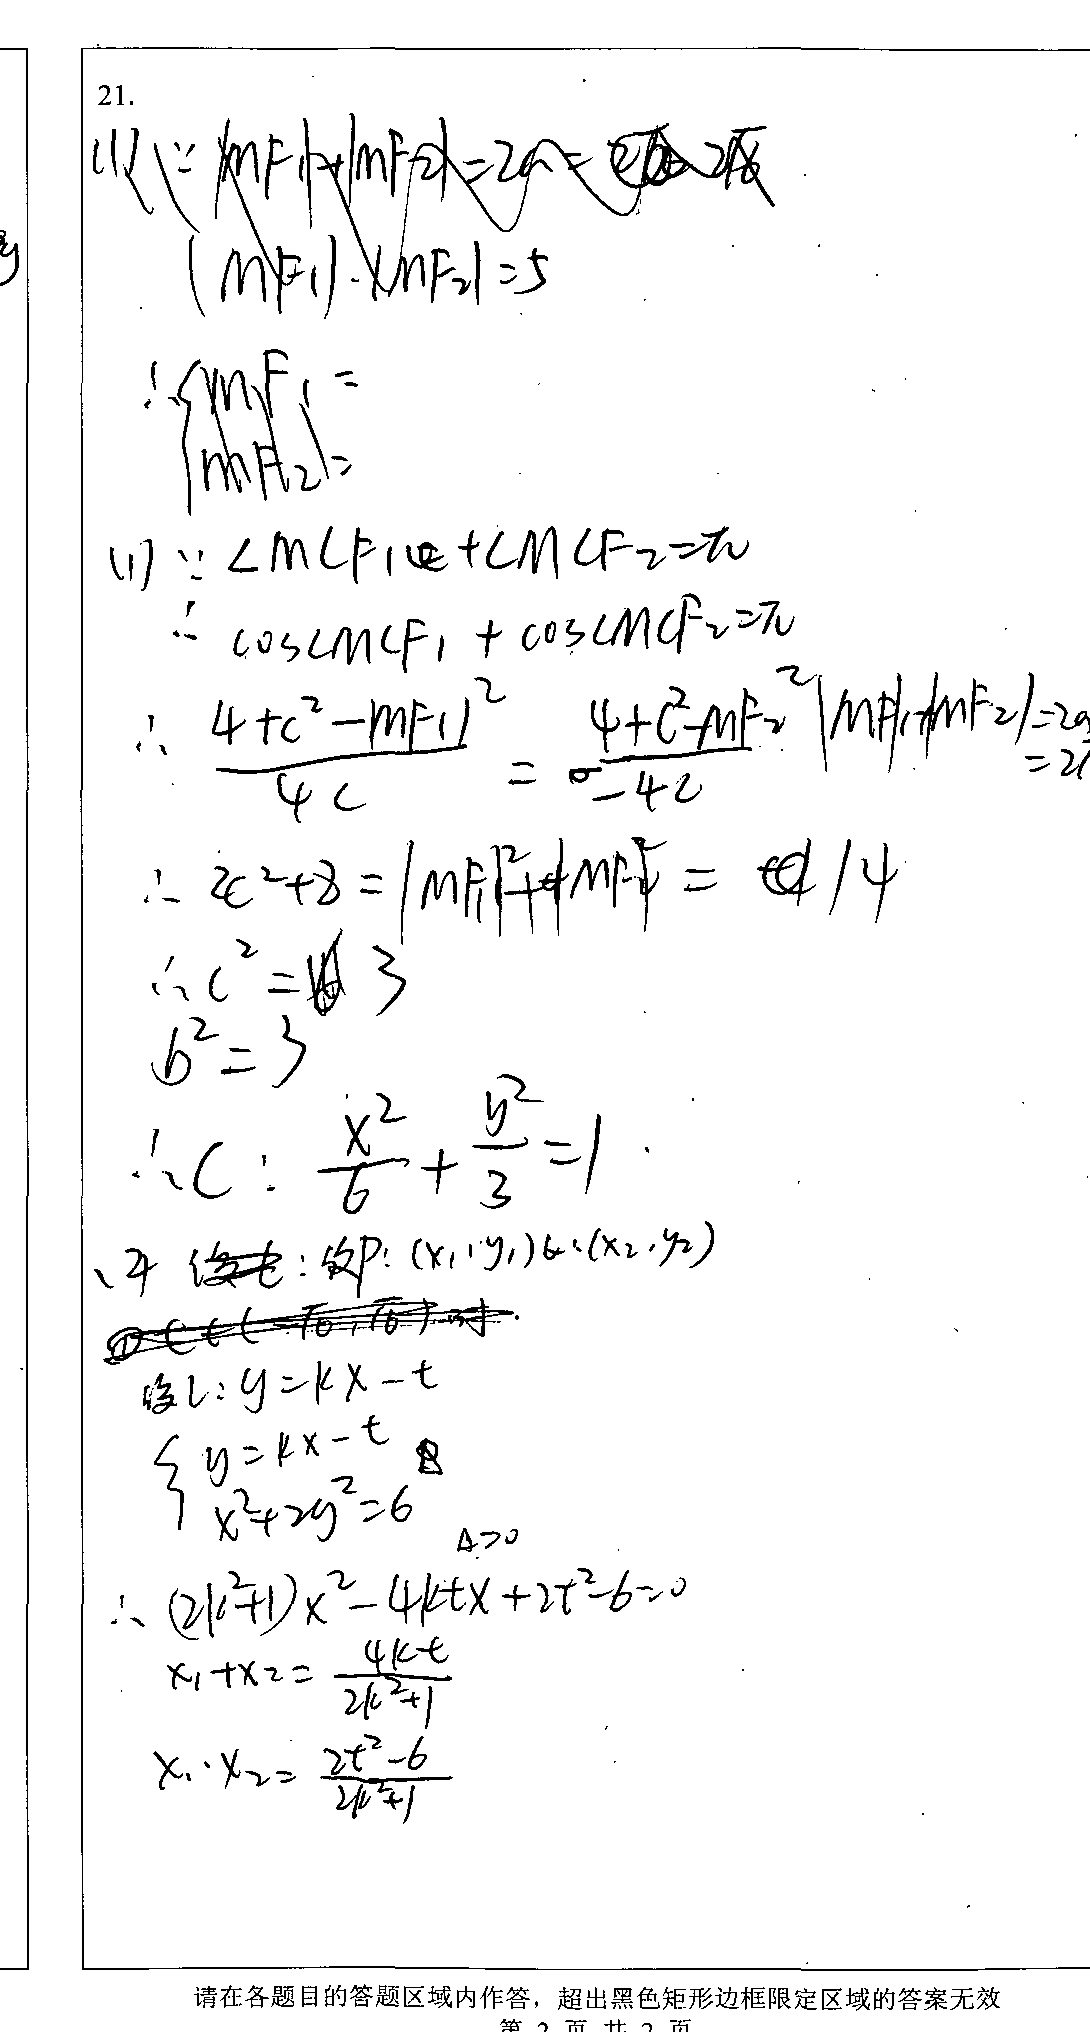 21.
(1) ∵ |MF₁|+|MF₂|=2a= 2√6
|MF₁|·|MF₂|=5
∴ { MF₁ =
MF₂ =
(1) ∵ ∠MCF₁ +∠MCF₂=π
∴ cos∠MCF₁ + cos∠MCF₂=π
∴ (4+c²-MF₁|²)/(4c) = (4+c²-MF₂²)/(-4c) |MF₁|+|MF₂|=2a
=2
∴ 2c²+8 = |MF₁|²+|MF₂|² = 14
∴ c² = 3
b² = 3
∴ C: x²/6 + y²/3 =1
: 设P:(x₁,y₁) Q:(x₂,y₂)
设l: y=kx-t
{ y=kx-t
x²+2y²=6
Δ>0
∴ (2k²+1)x²-4ktx+2t²-6=0
x₁+x₂= 4kt/(2k²+1)
x₁·x₂= (2t²-6)/(2k²+1)
请在各题目的答题区域内作答，超出黑色矩形边框限定区域的答案无效
第 2 页 共 2 页